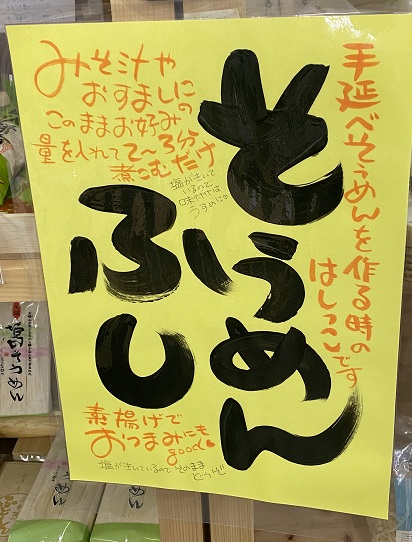 手延べそうめんを作る時の
はしっこです
そうめん
ふし
みそ汁や
おすましに
このままお好みの
量を入れて2〜3分
煮こむだけ
塩が主いて
いるので
味付けは
うすめに
素揚げで
おつまみにも
good
塩が主いているので そのまま
どうぞ
そうめん